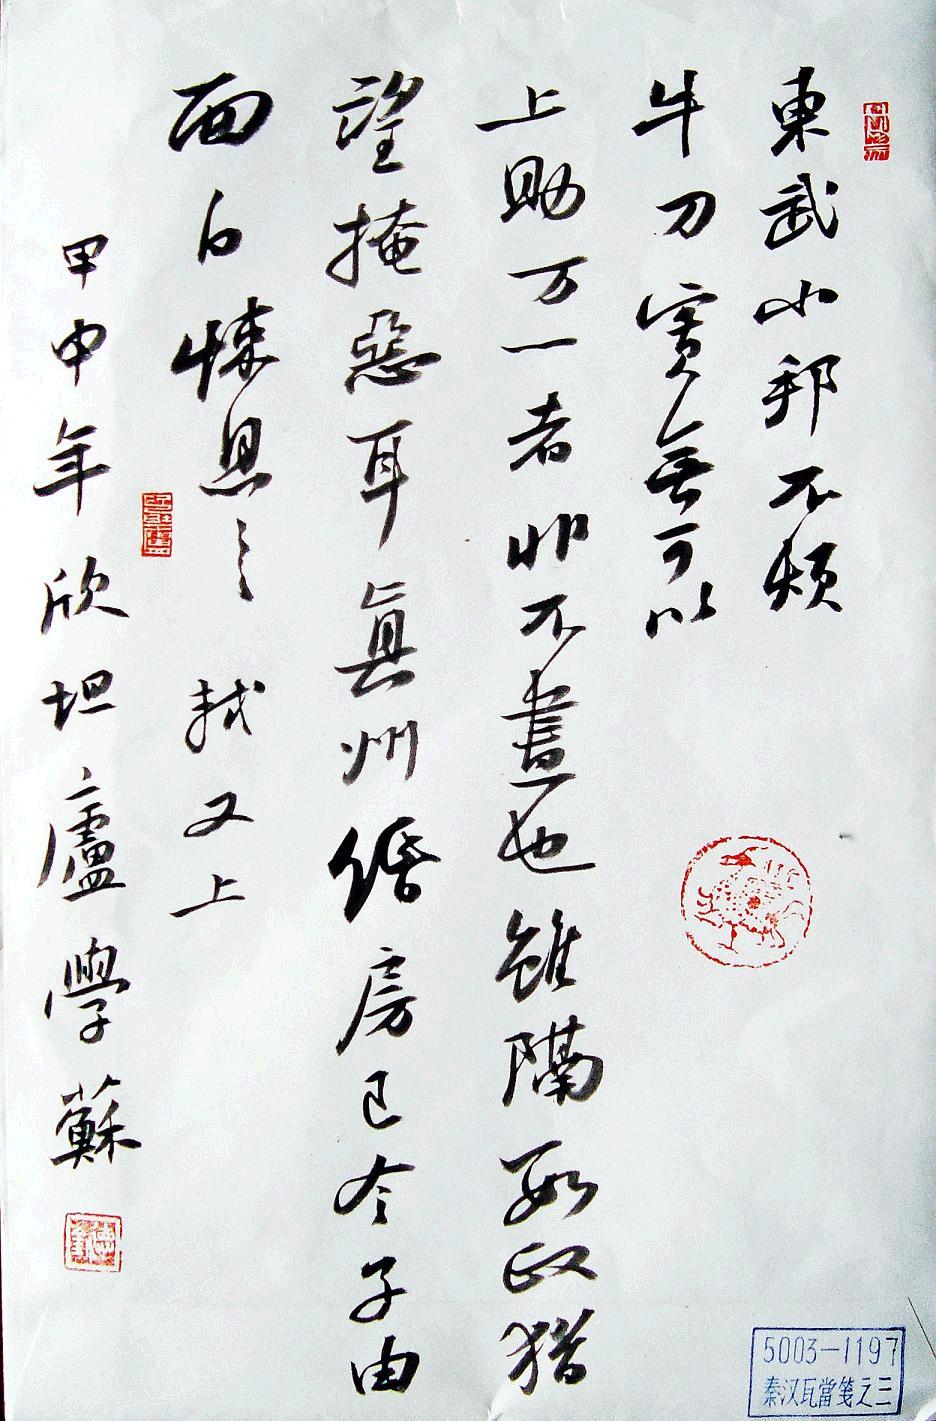 東武小邦不煩
牛刀實無可以
上助万一者非不盡也雖隔數政猶
望掩惡耳真州緡房已令子由
面白悚息〻 軾又上
甲申年欣坦廬學蘇
5003-1197
秦汉瓦當笺之三